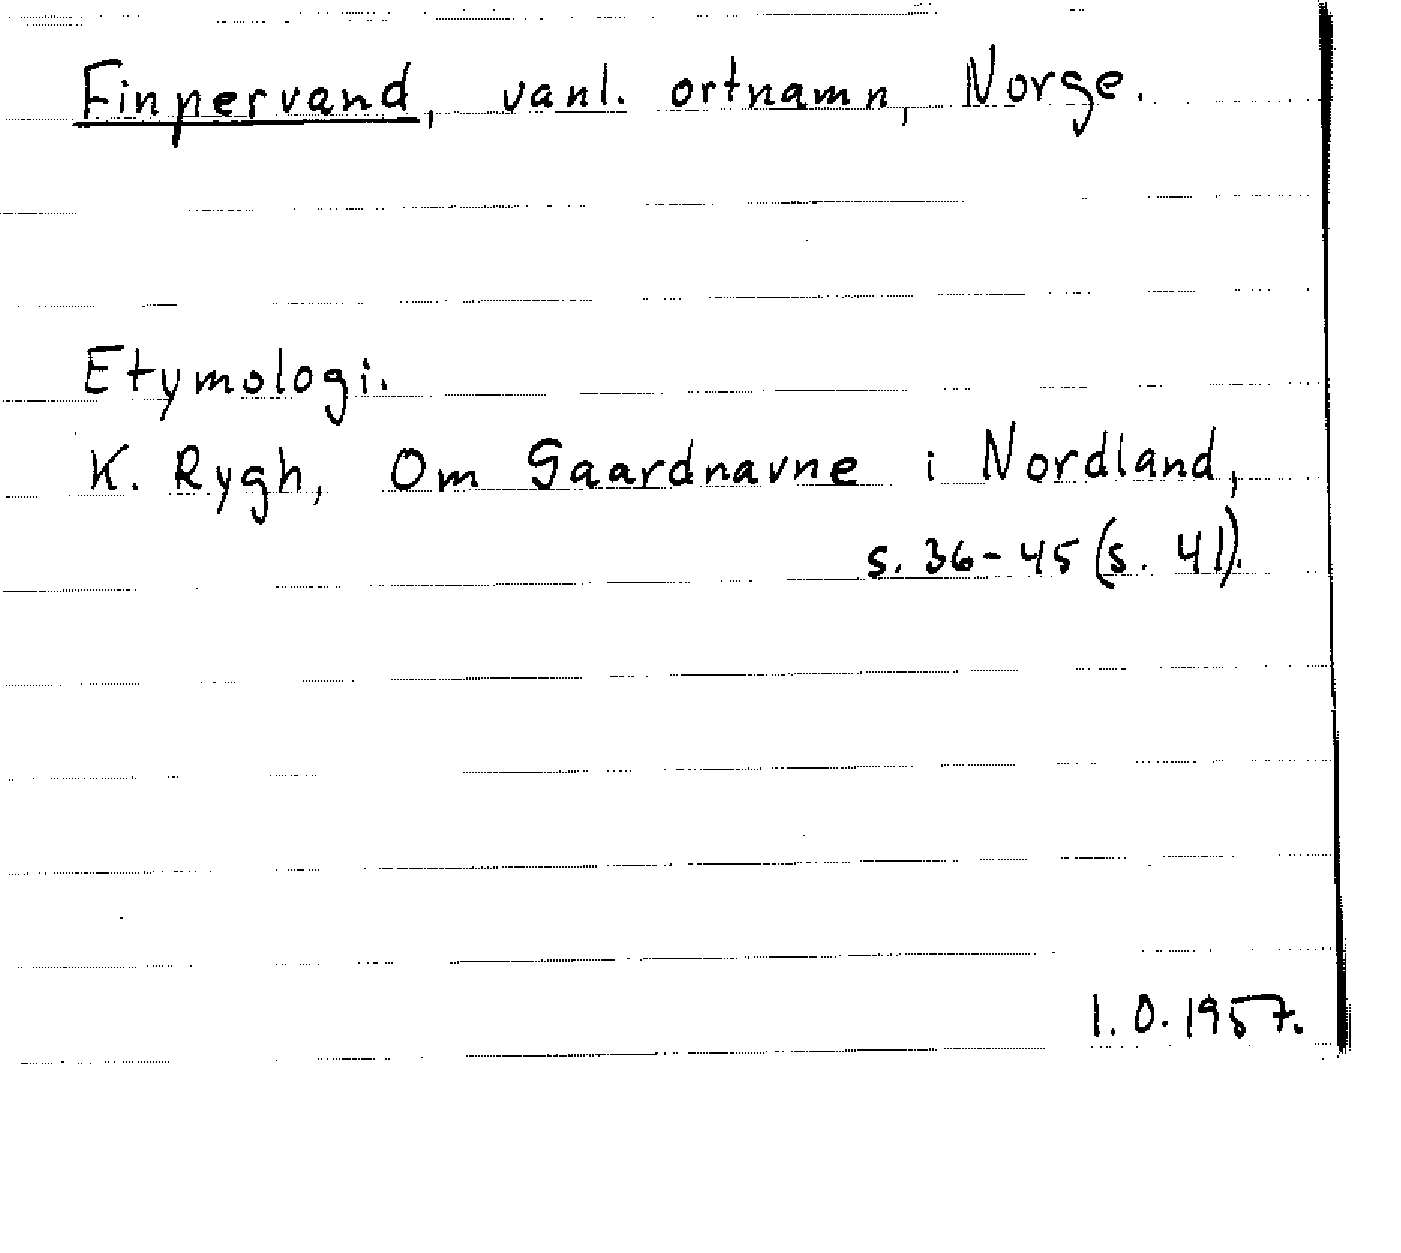 Finnervand, vanl. ortnamn, Norge.
Etymologi.
K. Rygh, Om Gaardnavne i Nordland,
s. 36-45 (s. 41).
I.O. 1957.